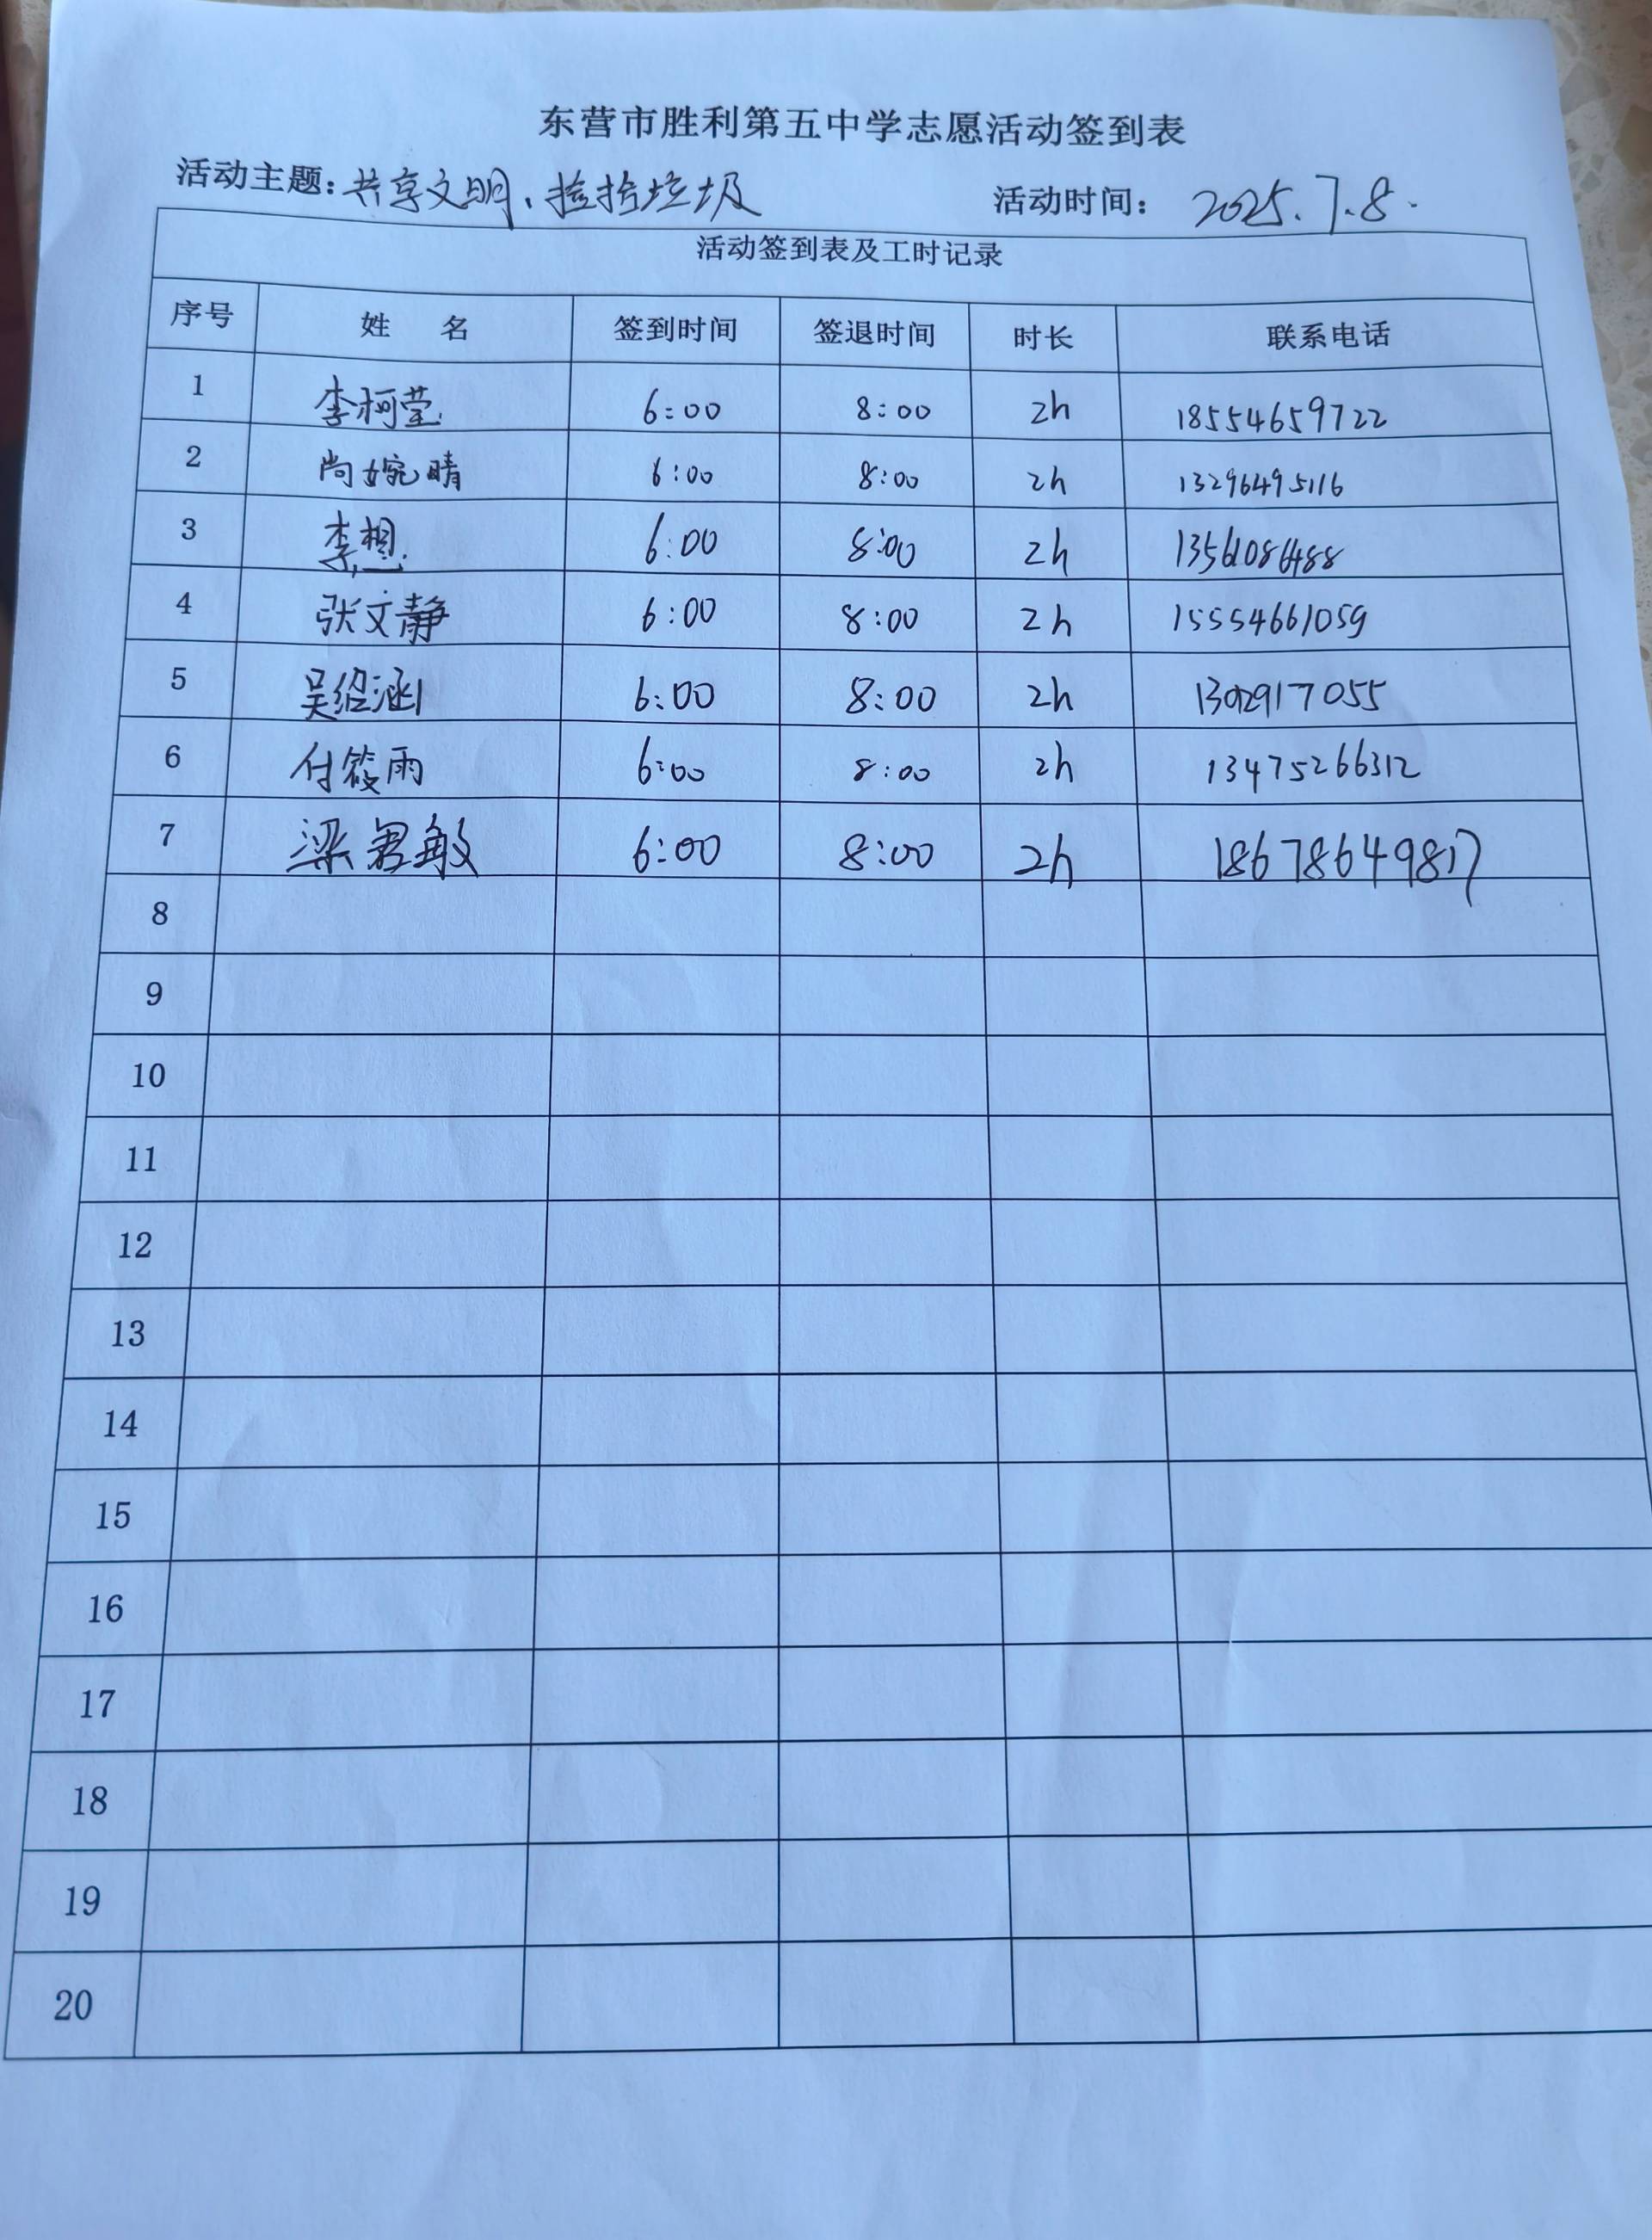 东营市胜利第五中学志愿活动签到表
活动主题：共享文明、捡拾垃圾 活动时间： 2025.7.8.
活动签到表及工时记录
序号 姓 名 签到时间 签退时间 时长 联系电话
1 李柯莹 6:00 8:00 2h 18554659722
2 尚婉晴 6:00 8:00 2h 13296495116
3 李想 6:00 8:00 2h
4 张文静 6:00 8:00 2h 15554661059
5 吴绍涵 6:00 8:00 2h
6 付筱雨 6:00 8:00 2h 13475266312
7 梁君敏 6:00 8:00 2h 18678649817
8
9
10
11
12
13
14
15
16
17
18
19
20